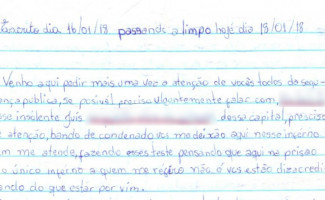 dia 16/01/18 passando a limpo hoje dia 19/01/18
Venho aqui pedir mais uma vez a atenção de vocês todos da segu-
ança publica, se posivel, preciso urgentemente falar com,
oso insolente Juis dessa capital, preciso
e atenção, bando de condenado vcs me deixão aqui nesse inferno
m me atende, fazendo esses teste pensando que aqui na prisão
o único inferno a quem me refiro não é vcs estão dizacredi
ando do que estar por vim.